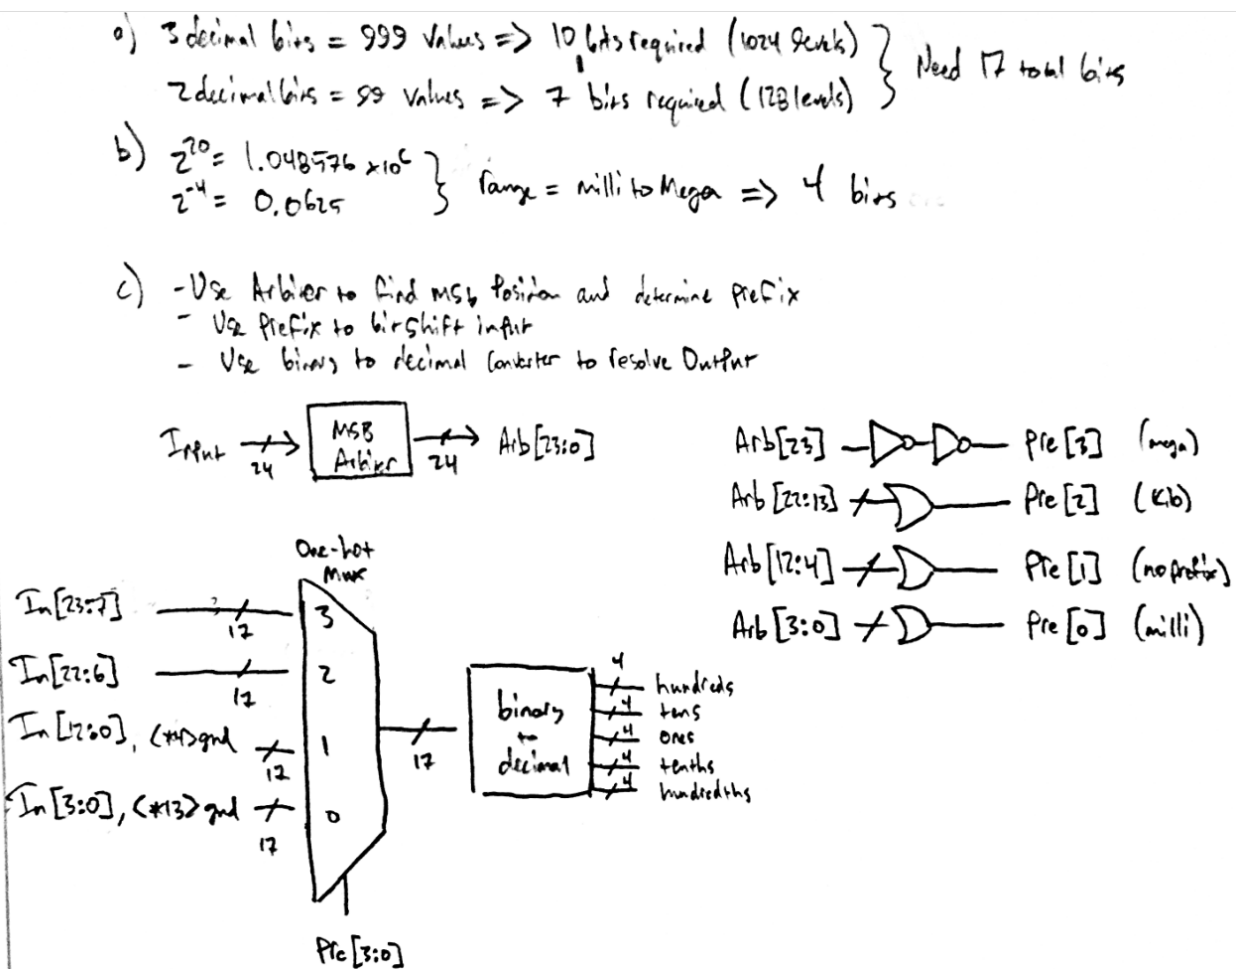 a) 3 decimal bits = 999 values => 10 bits required (1024 levels) } Need 17 total bits
2 decimal bits = 99 values => 7 bits required (128 levels)
b) 2^20 = 1.048576 x10^6 } range = milli to Mega => 4 bits
2^-4 = 0.0625
c) - Use Arbiter to find msb Position and determine prefix
- Use Prefix to bitshift input
- Use binary to decimal converter to resolve Output
Input 24 MSB Arbiter 24 Arb[23:0]
Arb[23] Pre[3] (mega)
Arb[22:13] Pre[2] (Kib)
Arb[12:4] Pre[1] (no prefix)
Arb[3:0] Pre[0] (milli)
One-hot
Mux
In[23:7] 17 3
In[22:6] 17 2
In[12:0], <*4>gnd 17 1
In[3:0], <*13>gnd 17 0
Pre[3:0]
17
binary
to
decimal
4 hundreds
4 tens
4 ones
4 tenths
4 hundredths